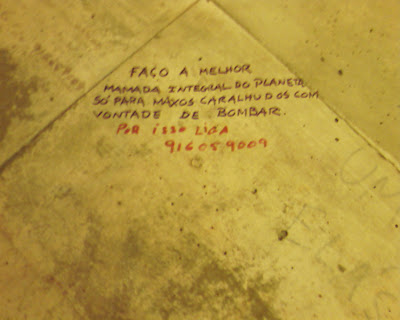 FAÇO A MELHOR
MAMADA INTEGRAL DO PLANETA
SÓ PARA MAXOS CARALHUDOS COM
VONTADE DE BOMBAR.
POR ISSO LIGA
916059009